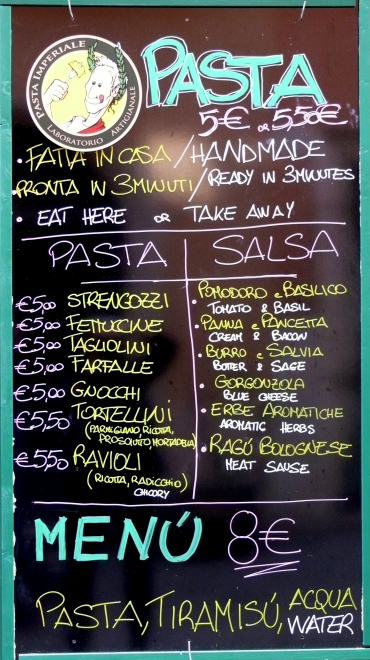 PASTA IMPERIALE
LABORATORIO ARTIGIANALE
PASTA
5€ OR 5,50€
• FATTA IN CASA / HANDMADE
• PRONTA IN 3 MINUTI / READY IN 3 MINUTES
• EAT HERE OR TAKE AWAY
PASTA
€5,00 STRENGOZZI
€5,00 FETTUCINE
€5,00 TAGLIOLINI
€5,00 FARFALLE
€5,00 GNOCCHI
€5,50 TORTELLINI
(PARMIGIANO RICOTTA,
PROSCIUTTO, MORTADELLA)
€5,50 RAVIOLI
(RICOTTA, RADICCHIO)
CHICORY
SALSA
• POMODORO e BASILICO
TOMATO & BASIL
• PANNA e PANCETTA
CREAM & BACON
• BURRO e SALVIA
BUTTER & SAGE
• GORGONZOLA
BLUE CHEESE
• ERBE AROMATICHE
AROMATIC HERBS
• RAGÚ BOLOGNESE
MEAT SAUSE
MENÚ 8€
PASTA, TIRAMISÚ, ACQUA
WATER